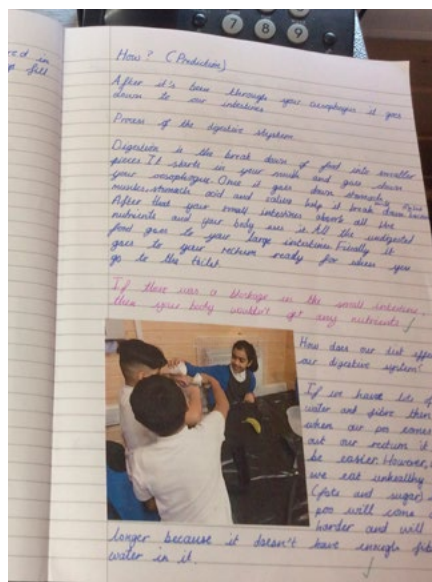 7 8 9
red in
fill
How? (Prediction)
After it's been through your oesophagus it goes
down to our intestines
Process of the digestive stystem
Digestion is the break down of food into smaller
pieces. It starts in your mouth and goes down
your oesophagus. Once it goes down stomach
muscles, stomach acid and saliva help it break down
After that your small intestines absorb all the
nutrients and your body uses it. All the undigested
food goes to your large intestines. Finally it
goes to your rectum ready for when you
go to the toilet.
If there was a blockage in the small intestine,
then your body wouldn't get any nutrients
How does our diet
our digestive system?
If we have lots of
water and fibre
when our poo comes
out our rectum it
be easier. However,
we eat unhealthy
(fats and sugar)
poo will come
harder and will
longer because it doesn't have enough
water in it.